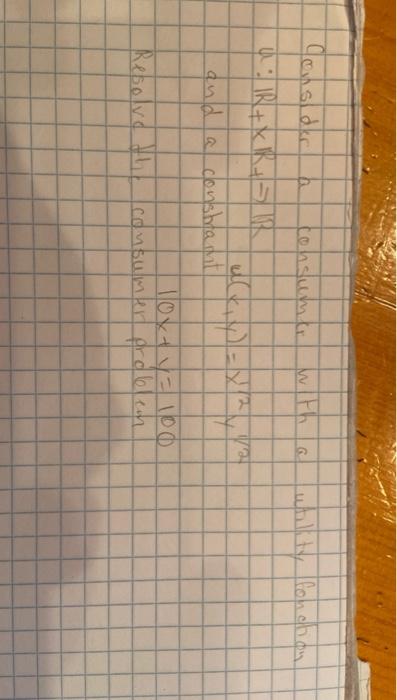 Consider a consumer with a utility fonction
u: ℝ+ x ℝ+ → ℝ
u(x,y) = x^1/2 y^1/2
and a constraint
10x + y = 100
Resolve the consumer problem